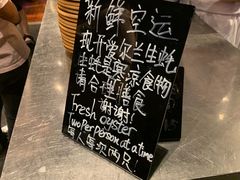 新鲜空运
现开爱尔兰生蚝
生蚝是寒凉食物
请合理膳食
谢谢!
Fresh oyster
Two Per person at a time
每人每次两只